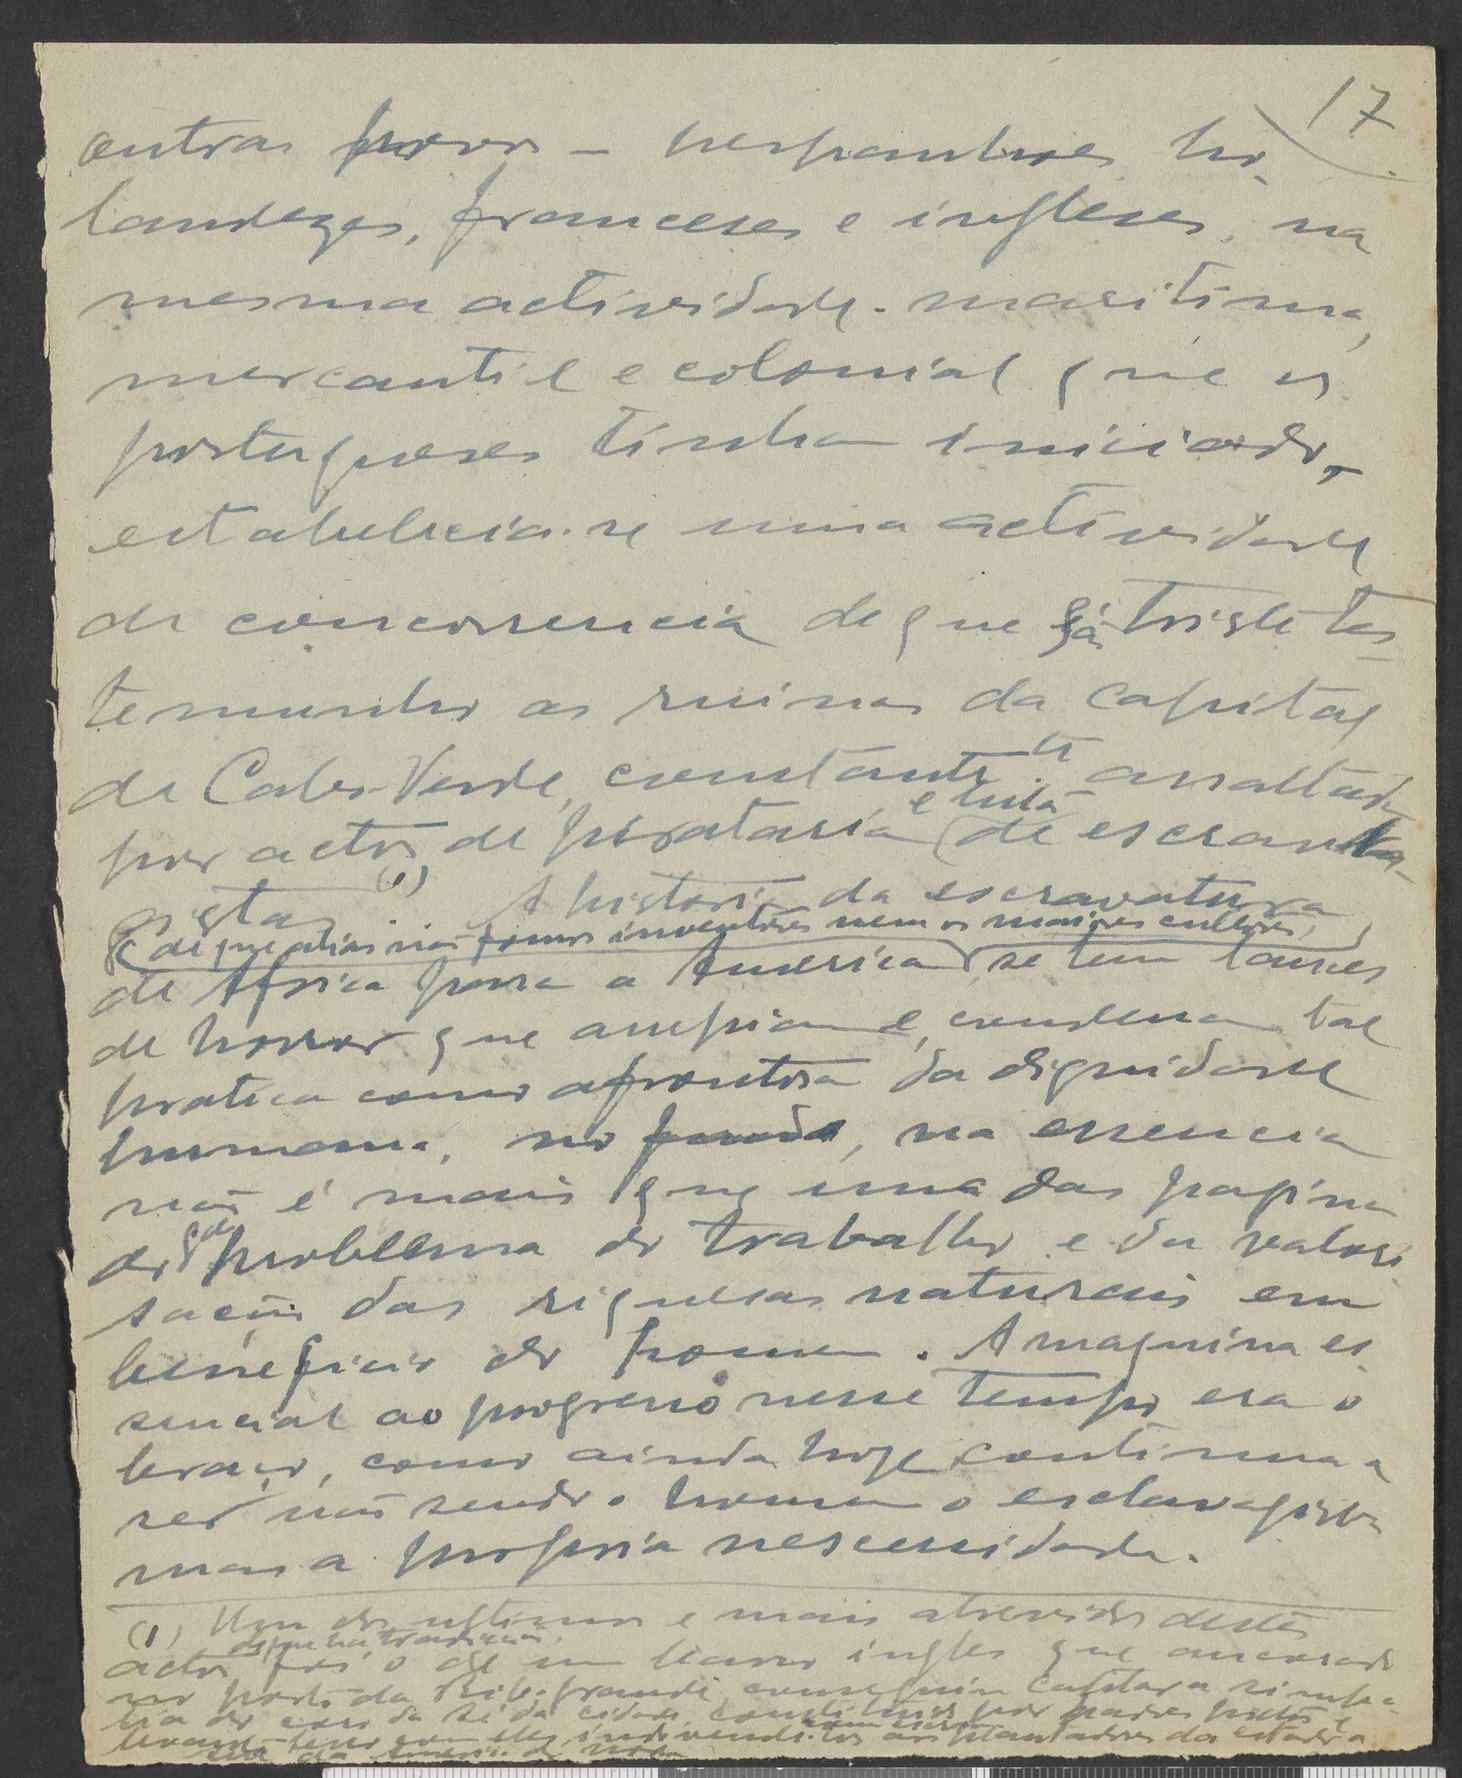 17
outros povos – hespanhoes, ho-
landezes, franceses e ingleses, na
mesma actividade maritima,
mercantil e colonial que os
portugueses tinham iniciado,
estabelecia-se uma actividade
de concorrencia de que já triste tes-
temunho as ruinas da capital
de Cabo-Verde, constante.te assaltada
por actos de pirataria e luta de escrava-
gistas (1). A historia da escravatura,
(de que aliás não fomos inventores nem os maiores cultores,
de Africa para a America, se tem lances
de horror que arrepiam e condenam tal
pratica como afrontosa da dignidade
humana, no fundo, na essencia
não é mais que uma das paginas
do problema do trabalho e da valori-
sação das riquesas naturais em
beneficio do homem. A maquina es-
sencial ao progresso nesse tempo era o
braço, como ainda hoje continua a
ser não sendo o homem o esclavagista
mas a propria necessidade.
(1) Um dos ultimos e mais atrevidos destes
de que ha tradição,
actos foi o de um barco ingles que ancorado
no porto da Rib. grande, conseguiu captar a simpa-
tia do coro da sé da cidade, constituido por padres pretos e
levando-os com eles vende-los aos plantadores